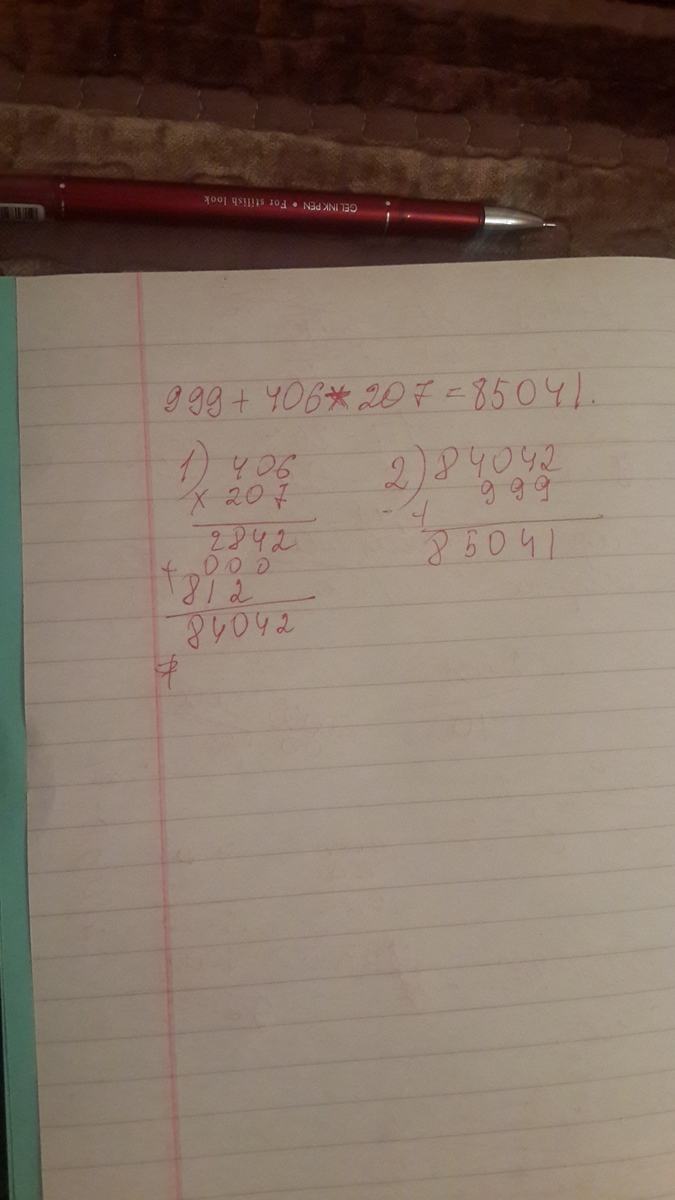 GELINK PEN • For stilish look
999 + 406 * 207 = 85041.
1) 406
× 207
2842
+ 000
812
84042
2) 84042
+ 999
85041